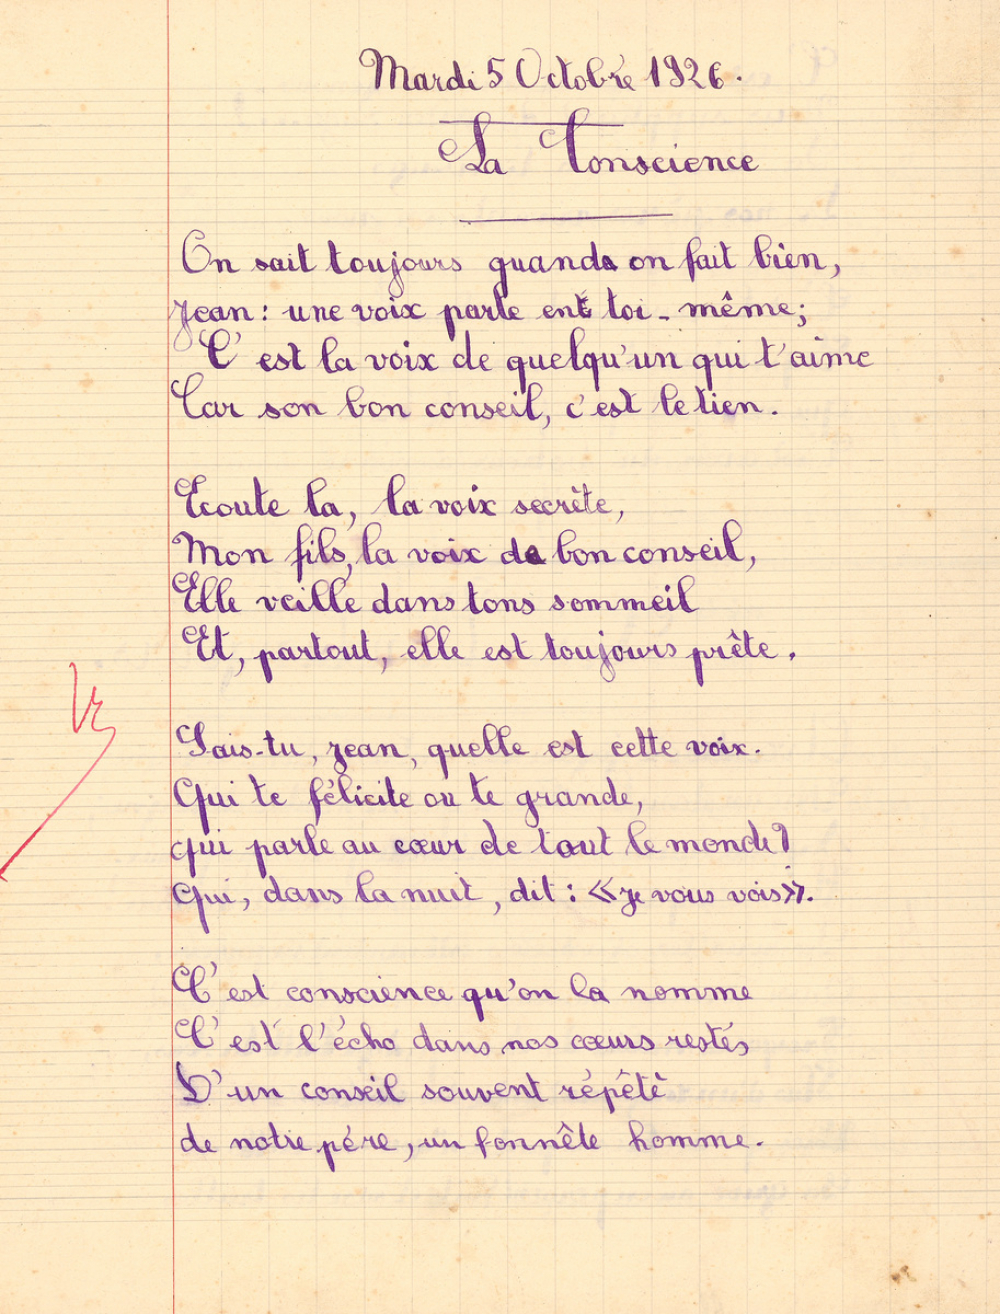 Mardi 5 Octobre 1926.
La Conscience
On sait toujours quand on fait bien,
Jean : une voix parle en toi-même ;
C'est la voix de quelqu'un qui t'aime
Car son bon conseil, c'est le tien.
Ecoute la, la voix secrète,
Mon fils, la voix de bon conseil,
Elle veille dans tons sommeil
Et, partout, elle est toujours prête.
Sais-tu, jean, quelle est cette voix.
Qui te félicite ou te grande,
qui parle au cœur de tout le monde ?
Qui, dans la nuit, dit : « Je vous vois ».
C'est conscience qu'on la nomme
C'est l'écho dans nos cœurs restés
D'un conseil souvent répêtè
de notre pére, un fonnête homme.